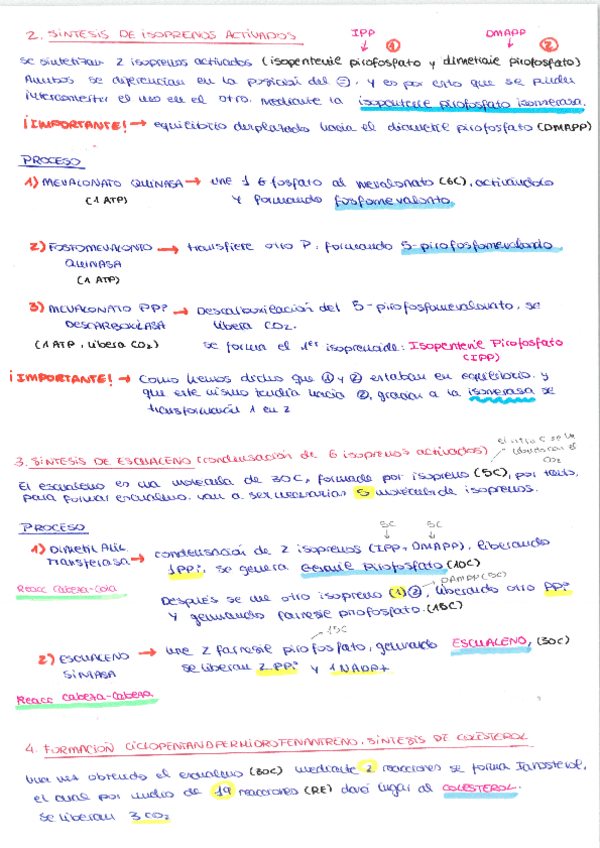 2. SÍNTESIS DE ISOPRENOS ACTIVADOS IPP ① DMAPP ②
Se sintetizan 2 isoprenos activados (isopentenil pirofosfato y dimetilalil pirofosfato)
Ambos se diferencian en la posición del =, y es por esto que se pueden
interconvertir el uno en el otro. Mediante la isopentenil pirofosfato isomerasa.
¡IMPORTANTE! → equilibrio desplazado hacia el dimetil pirofosfato (DMAPP)
PROCESO
1) MEVALONATO QUINASA → une 1 G fosfato al mevalonato (6C), activándolo
(1 ATP) y formando fosfomevalonato.
2) FOSFOMEVALONATO → transfiere otro P. formando 5-pirofosfomevalonato
QUINASA
(1 ATP)
3) MEVALONATO PP? → Descarboxilación del 5-pirofosfomevalonato, se
DESCARBOXILASA libera CO2.
(1 ATP, libera CO2) se forma el 1er isoprenoide: Isopentenil Pirofosfato
(IPP)
¡IMPORTANTE! → Como hemos dicho que ① y ② estaban en equilibrio. y
que este mismo tendía hacia ②, gracias a la isomerasa se
transformarán 1 en 2
3. SÍNTESIS DE ESCUALENO (condensación de 6 isoprenos activados) el otro C se va
liberado con el
CO2
El escualeno es una molécula de 30C, formada por isopreno (5C), por tanto,
para formar escualeno. van a ser necesarias 5 moléculas de isoprenos.
PROCESO
5C 5C
1) DIMETIL ALIL → condensación de 2 isoprenos (IPP + DMAPP), liberando
TRANSFERASA 1PPi, se genera Geranil Pirofosfato (10C)
Reacc Cabeza-Cola
DMAPP (5C)
Después se une otro isopreno (1)②, liberando otro PPi
y generando farnesil pirofosfato. (15C)
15C
2) ESCUALENO → une 2 farnesil pirofosfato, generando ESCUALENO, (30C)
SINTASA se liberan 2 PPi y 1 NADP+
Reacc Cabeza-Cabeza
4. FORMACIÓN CICLOPENTANOPERHIDROFENANTRENO. SÍNTESIS DE COLESTEROL
Una vez obtenido el escualeno (30C) mediante 2 reacciones se forma lanosterol,
el cual por medio de 19 reacciones (RE) dará lugar al COLESTEROL.
se liberan 3 CO2